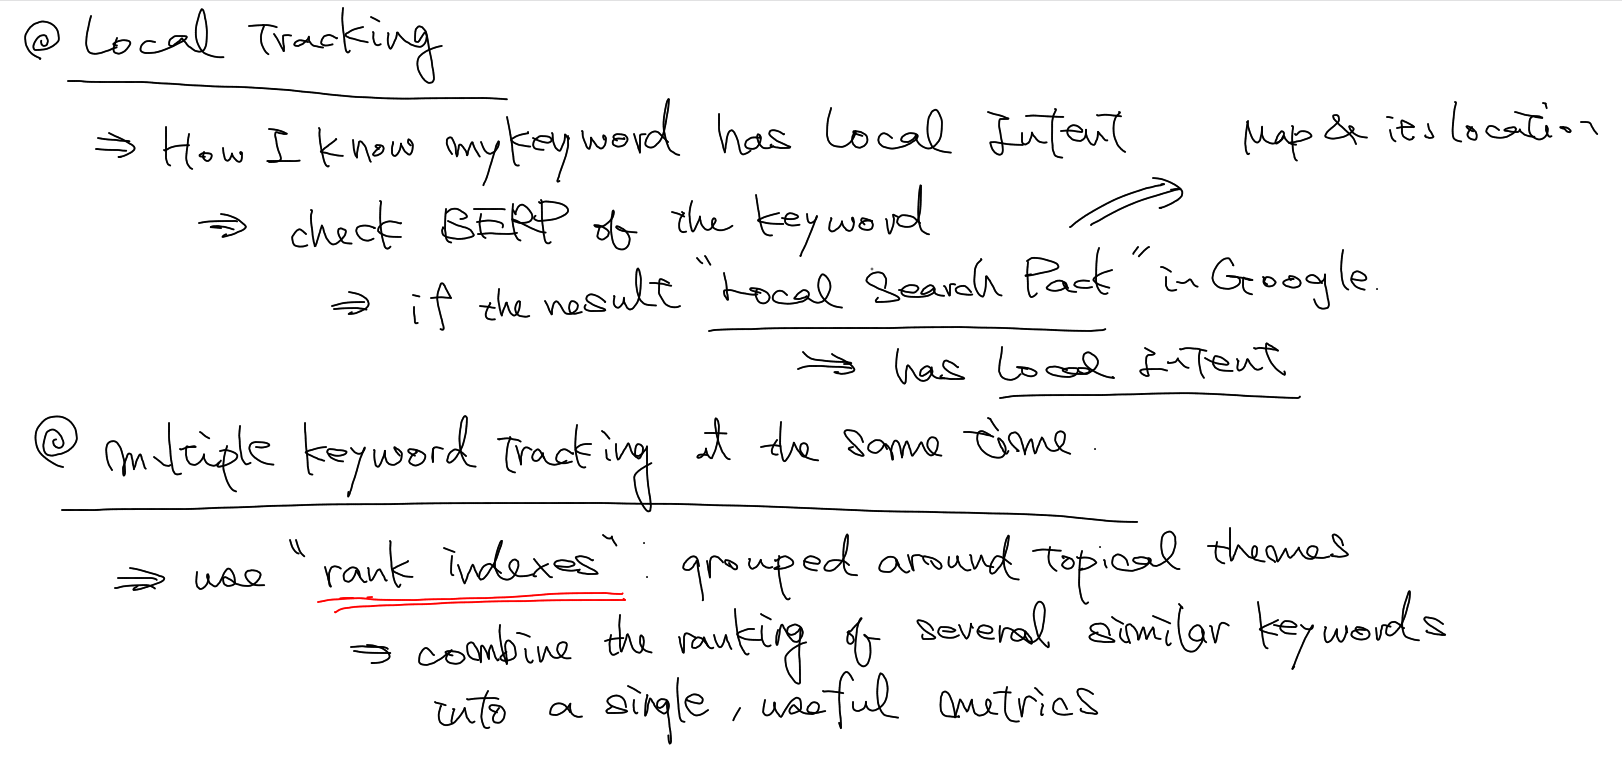 @ Local Tracking
⇒ How I know my keyword has Local Intent
Map & its location
⇒ check SERP of the keyword
⇒ if the result "Local Search Pack" in Google.
⇒ has Local Intent
@ multiple keyword Tracking at the same time.
⇒ use "rank indexes" : grouped around topical themes
⇒ combine the ranking of several similar keywords
into a single, useful metrics